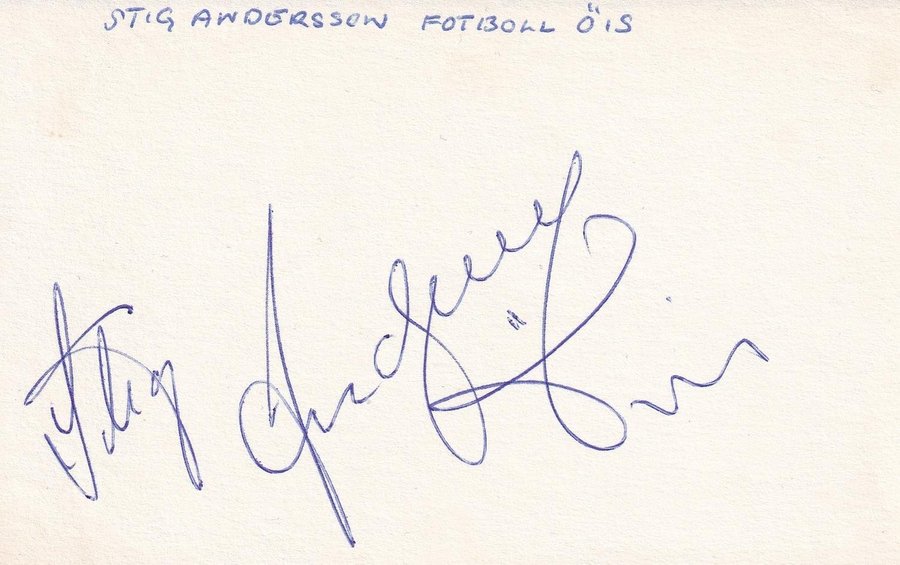 STIG ANDERSSON FOTBOLL ÖIS
Stig Andersson Öis